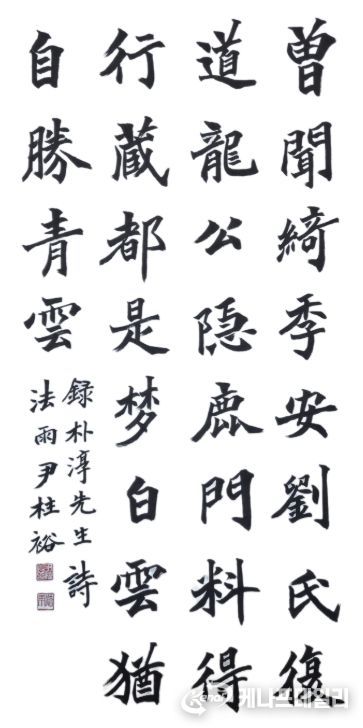 曽聞綺季安劉氏復
道龍公隱鹿門料得
行蔵都是梦白雲猶
自勝青雲
録朴淳先生詩
法雨尹柱裕
케나프데일리